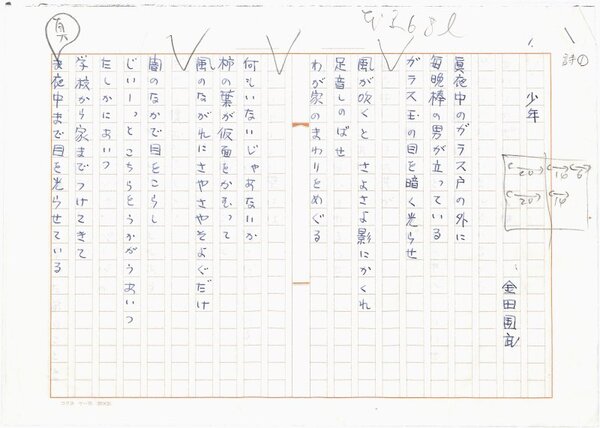 詩①
少年
金田国武
真夜中のガラス戸の外に
毎晩棒の男が立っている
ガラス玉の目を暗く光らせ
風が吹くと さよさよ影にかくれ
足音しのばせ
わが家のまわりをめぐる
何もいないじゃあないか
柿の葉が仮面をかむって
風のながれにさやさやそよぐだけ
闇のなかで目をこらし
じいーっとこちらをうかがうあいつ
たしかにあいつ
学校から家までつけてきて
真夜中まで目を光らせている
真
20
16
6
20
16
コクヨ ケ-75 20×20